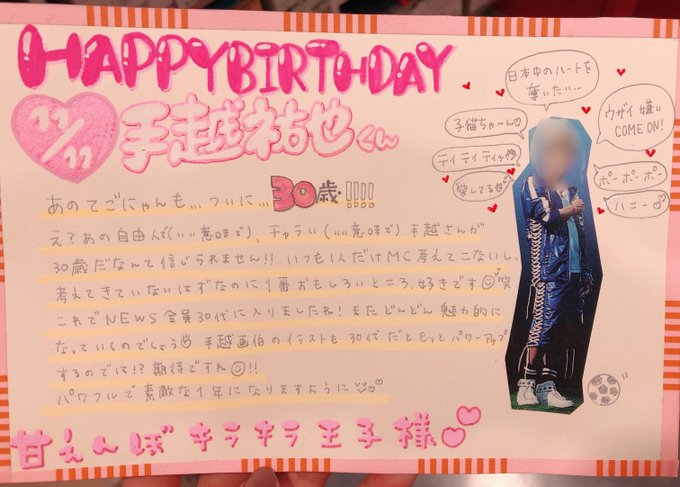 HAPPY BIRTHDAY
11/11
手越祐也くん
あのてごにゃんも... ついに... 30歳!!!!
え?あの自由人で(いい意味で)、チャラい(いい意味で)手越さんが
30歳だなんて信じられません!! いつも1人だけMC考えてこないし、
考えてきていないはずなのに1番おもしろいところ、好きです笑
これでNEWS全員30代に入りましたね! またどんどん魅力的に
なっていくのでしょう 手越画伯のイラストも30代だともっとパワーアップ
するのでは!? 期待ですね!!
パワフルで素敵な1年になりますように
甘えんぼキラキラ王子様
日本中のハートを
奪いたい...
子猫ちゃ〜ん
テイテイティッ
愛してる
ウザイ嫌い
COME ON!
ポーポーポー
ハニー